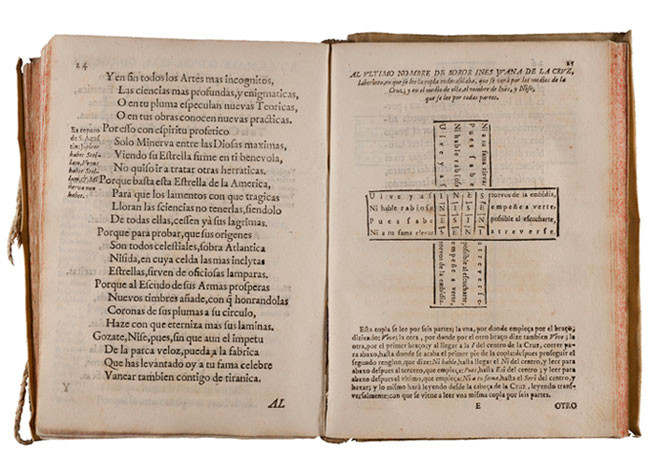 24
Y en sin todos los Artes mas incognitos,
Las ciencias mas profundas, y enigmaticas,
O en tu pluma especulan nuevas Teoricas,
O en tus obras conocen nuevas practicas.
Por esso con espiritu profetico
Solo Minerva entre las Diosas maximas,
Viendo su Estrella firme en ti benevola,
No quiso ir a tratar otras herraticas.
de S. Agus-
haber Stel-
haber Stel-
nerva non
haber.
Porque basta esta Estrella de la America,
Para que los lamentos con que tragicas
Lloran las sciencias no tenerlas, siendolo
De todas ellas, cessen yà sus lagrimas.
Porque para probar, que sus origenes
Son todos celestiales, sobra Atlantica
Nisida, en cuya celda las mas inclytas
Estrellas, sirven de oficiosas lamparas.
Porque al Escudo de sus Armas prosperas
Nuevos timbres añade, con q̃ honrandolas
Coronas de sus plumas a su circulo,
Haze con que eterniza mas sus laminas.
Gozate, Nise, pues, sin que aun el impetu
De la parca veloz, pueda a la fabrica
Que has levantado oy a tu fama celebre
Vanear tambien contigo de tiranica.
Y
AL
25
AL VLTIMO NOMBRE DE SOROR INES JUANA DE LA CRVZ,
Laberinto, en que se lee la copla
Cruz, y en el medio de elle, el nombre de Inès, y Nise,
que se lee por todas partes.
Ni a su fama
Pues sabe
Ni hable rabiosa
Uive y a s
Uive y a s
Ni hable rabiosa
Pues sabe
Ni a su fama
empeñe a verte,
posible al escucharte,
atreverse.
rores de la embidia,
empeñe a verte,
posible al escucharte,
atreverse.
Esta copla se lee por seis partes; la vna, por donde empieça por el braço,
diziendo: Vive; la otra, por donde por el otro braço dize tambien Vive; la
otra, por el primer braço; y al llegar a la I del centro de la Cruz, correr pa-
ra abaxo, hasta donde se acaba el primer pie de la copla: despues proseguir el
segundo renglon, que dize: Ni hable, hasta llegar el Ni del centro, y leer para
abaxo despues al tercero, que empieça; Pues, hasta Esi del centro; y leer para
abaxo despues el vltimo, que empieça: Ni a su fama, hasta el Seri del centro, y
baxar; y lo mismo harà leyendo desde la cabeça de la Cruz, leyendo trans-
versalmente; con que se viene a leer vna misma copla por seis partes.
E
OTRO